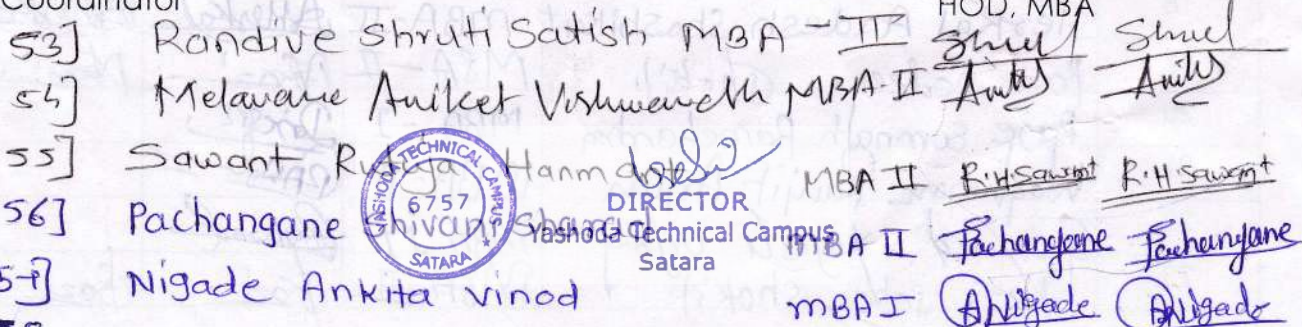 Coordinator HOD, MBA
53] Randive Shruti Satish MBA - II
54] Melavane Aniket Vishwanath MBA-II
55] Sawant Rutuja Hanmant MBA II R.H Sawant R.H Sawant
56] Pachangane Shivani Sharad MBA II Pachangane Pachangane
57] Nigade Ankita Vinod MBA I ANigade ANigade
YASHODA TECHNICAL CAMPUS
6757
SATARA
DIRECTOR
Yashoda Technical Campus
Satara